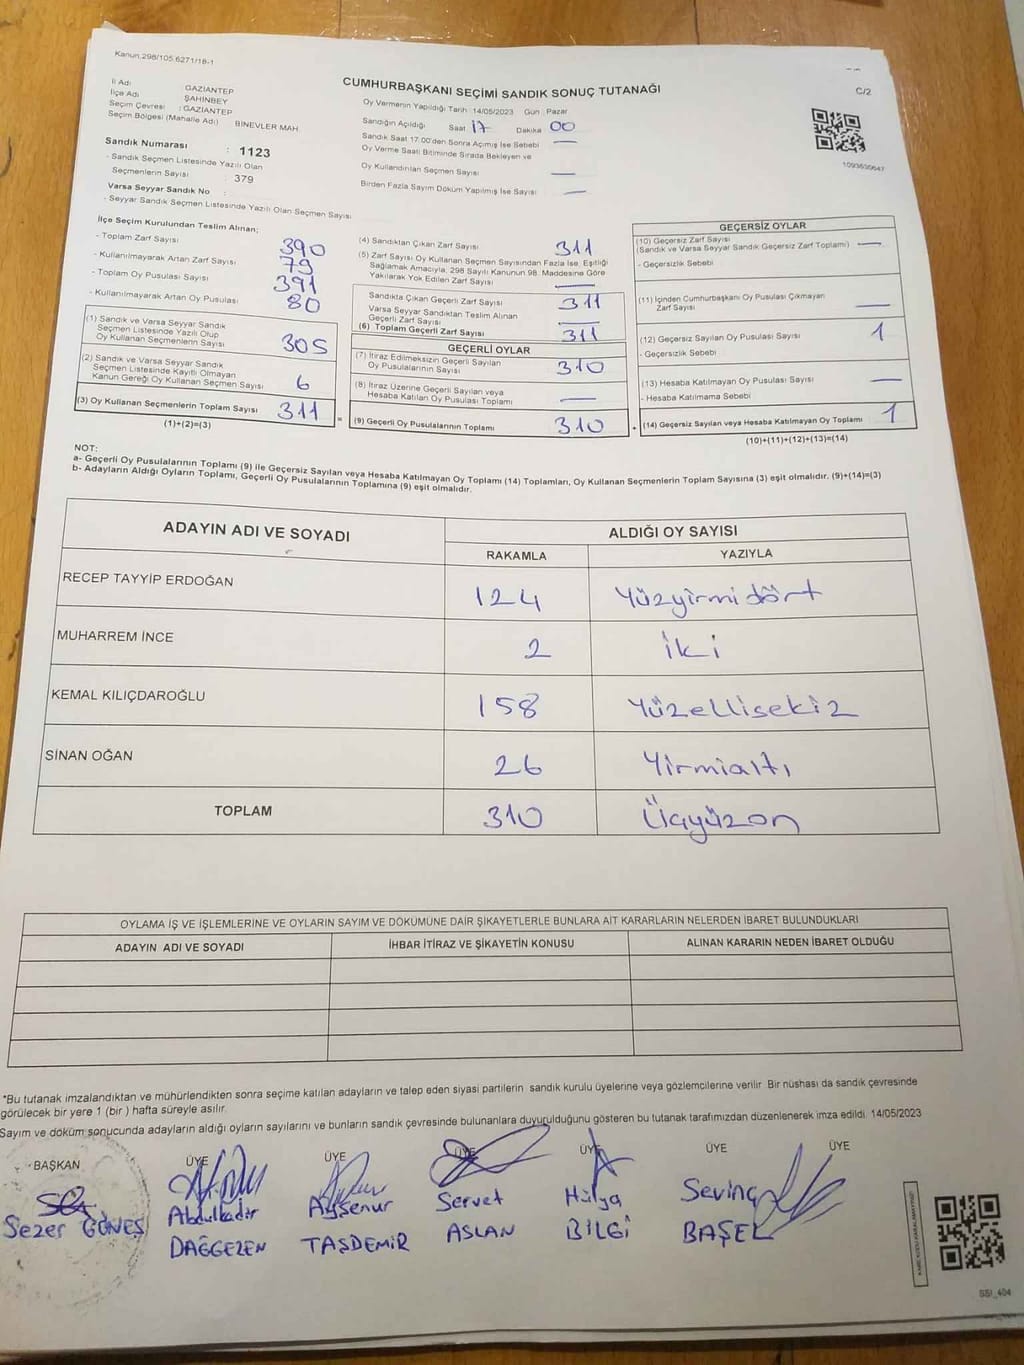 Kanun.298/105.6271/18-1
CUMHURBAŞKANI SEÇİMİ SANDIK SONUÇ TUTANAĞI
C/2
İl Adı : GAZİANTEP
İlçe Adı ŞAHİNBEY
Seçim Çevresi : GAZİANTEP
Seçim Bölgesi (Mahalle Adı) BİNEVLER MAH.
Sandık Numarası : 1123
- Sandık Seçmen Listesinde Yazılı Olan
Seçmenlerin Sayısı : 379
Varsa Seyyar Sandık No :
- Seyyar Sandık Seçmen Listesinde Yazılı Olan Seçmen Sayısı
Oy Vermenin Yapıldığı Tarih : 14/05/2023 Gün : Pazar
Sandığın Açıldığı Saat 17 Dakika 00
Sandık Saat 17:00'den Sonra Açımış İse Sebebi —
Oy Verme Saati Bitiminde Sırada Bekleyen ve
Oy Kullandırılan Seçmen Sayısı —
Birden Fazla Sayım Döküm Yapılmış İse Sayısı —
1093630647
İlçe Seçim Kurulundan Teslim Alınan;
- Toplam Zarf Sayısı 390
- Kullanılmayarak Artan Zarf Sayısı 79
- Toplam Oy Pusulası Sayısı 391
- Kullanılmayarak Artan Oy Pusulası 80
(1) Sandık ve Varsa Seyyar Sandık
Seçmen Listesinde Yazılı Olup
Oy Kullanan Seçmenlerin Sayısı 305
(2) Sandık ve Varsa Seyyar Sandık
Seçmen Listesinde Kayıtlı Olmayan
Kanun Gereği Oy Kullanan Seçmen Sayısı 6
(3) Oy Kullanan Seçmenlerin Toplam Sayısı 311 =
(1)+(2)=(3)
(4) Sandıktan Çıkan Zarf Sayısı 311
(5) Zarf Sayısı Oy Kullanan Seçmen Sayısından Fazla İse, Eşitliği
Sağlamak Amacıyla, 298 Sayılı Kanunun 98. Maddesine Göre
Yakılarak Yok Edilen Zarf Sayısı —
Sandıkta Çıkan Geçerli Zarf Sayısı 311
Varsa Seyyar Sandıktan Teslim Alınan
Geçerli Zarf Sayısı —
(6) Toplam Geçerli Zarf Sayısı 311
GEÇERLİ OYLAR
(7) İtiraz Edilmeksizin Geçerli Sayılan
Oy Pusulalarının Sayısı 310
(8) İtiraz Üzerine Geçerli Sayılan veya
Hesaba Katılan Oy Pusulası Toplamı —
(9) Geçerli Oy Pusulalarının Toplamı 310 +
GEÇERSİZ OYLAR
(10) Geçersiz Zarf Sayısı
(Sandık ve Varsa Seyyar Sandık Geçersiz Zarf Toplamı) —
- Geçersizlik Sebebi
(11) İçinden Cumhurbaşkanı Oy Pusulası Çıkmayan
Zarf Sayısı —
(12) Geçersiz Sayılan Oy Pusulası Sayısı 1
- Geçersizlik Sebebi
(13) Hesaba Katılmayan Oy Pusulası Sayısı —
- Hesaba Katılmama Sebebi
(14) Geçersiz Sayılan veya Hesaba Katılmayan Oy Toplamı 1
(10)+(11)+(12)+(13)=(14)
NOT:
a- Geçerli Oy Pusulalarının Toplamı (9) ile Geçersiz Sayılan veya Hesaba Katılmayan Oy Toplamı (14) Toplamları, Oy Kullanan Seçmenlerin Toplam Sayısına (3) eşit olmalıdır. (9)+(14)=(3)
b- Adayların Aldığı Oyların Toplamı, Geçerli Oy Pusulalarının Toplamına (9) eşit olmalıdır.
ADAYIN ADI VE SOYADI ALDIĞI OY SAYISI
RAKAMLA YAZIYLA
RECEP TAYYİP ERDOĞAN 124 Yüzyirmidört
MUHARREM İNCE 2 iki
KEMAL KILIÇDAROĞLU 158 Yüzellisekiz
SİNAN OĞAN 26 Yirmialtı
TOPLAM 310 Üçyüzon
OYLAMA İŞ VE İŞLEMLERİNE VE OYLARIN SAYIM VE DÖKÜMÜNE DAİR ŞİKAYETLERLE BUNLARA AİT KARARLARIN NELERDEN İBARET BULUNDUKLARI
ADAYIN ADI VE SOYADI İHBAR İTİRAZ VE ŞİKAYETİN KONUSU ALINAN KARARIN NEDEN İBARET OLDUĞU
*Bu tutanak imzalandıktan ve mühürlendikten sonra seçime katılan adayların ve talep eden siyasi partilerin sandık kurulu üyelerine veya gözlemcilerine verilir. Bir nüshası da sandık çevresinde
görülecek bir yere 1 (bir ) hafta süreyle asılır.
Sayım ve döküm sonucunda adayların aldığı oyların sayılarını ve bunların sandık çevresinde bulunanlara duyurulduğunu gösteren bu tutanak tarafımızdan düzenlenerek imza edildi. 14/05/2023
BAŞKAN ÜYE ÜYE ÜYE ÜYE ÜYE ÜYE
Sezer GÜNEŞ
Abdulkadir DAĞGEZEN
Ayşenur TAŞDEMİR
Servet ASLAN
Hülya BİLGİ
Sevinç BAŞEL
SSI_404